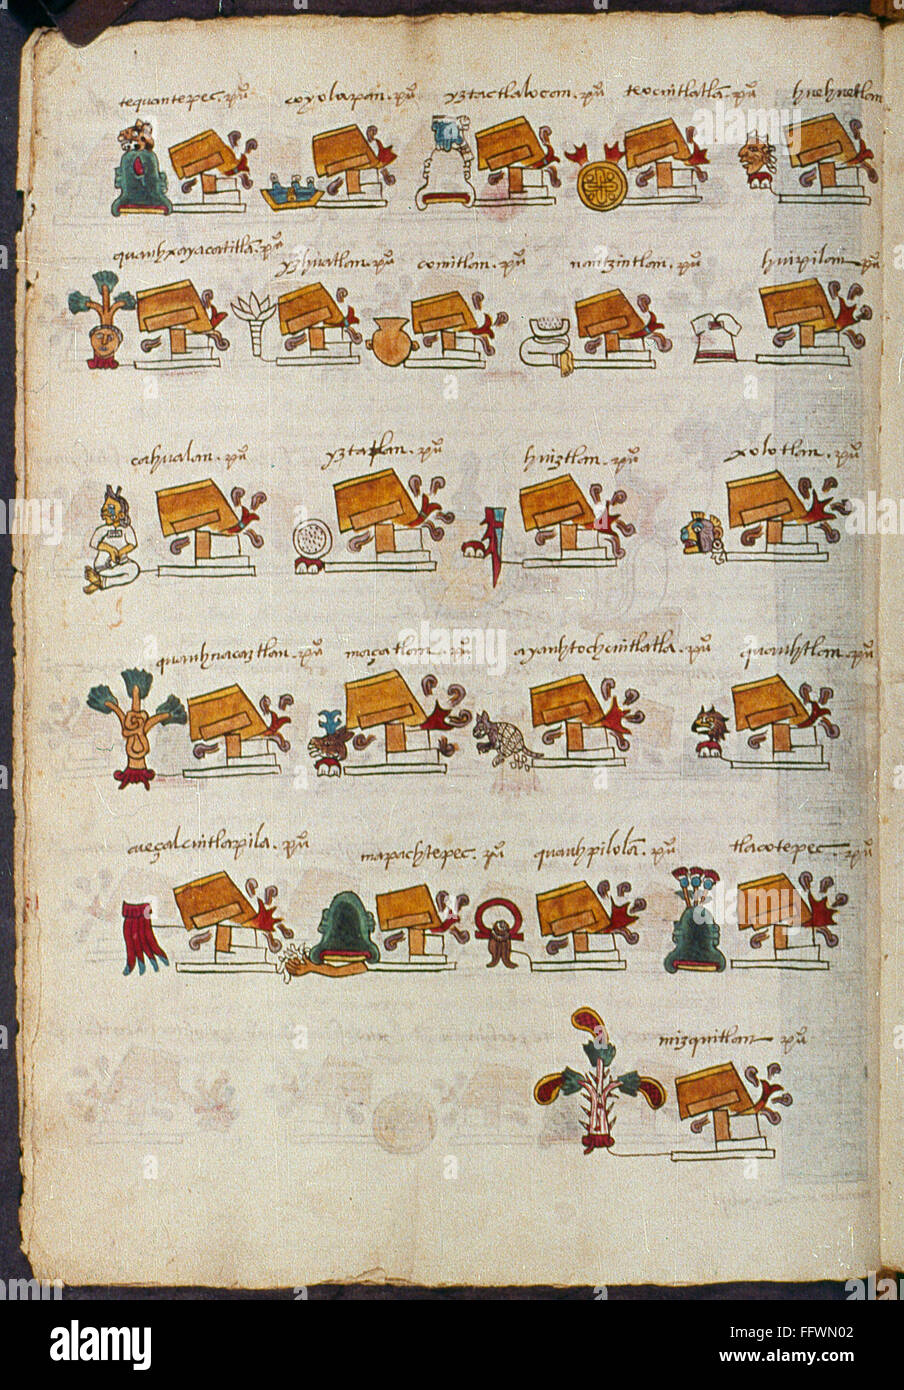 tequantepec. pũ coyolapan. pũ yztactlalocan. pũ teocuitlatlã. pũ huehuetlan
quauhxayacatitlã. pũ yzhuatlan. pũ comitlan. pũ nantzintlan. pũ huipilan pũ
cahualan. pũ yztatlan. pũ huiztlan. pũ xolotlan. pũ
quauhnacaztlan. pũ maçatlan. pũ ayauhtochcuitlatla. pũ quauhtlan. pũ
cueçalcuitlapila. pũ mapachtepec. pũ quauhpilolã. pũ tlacotepec. pũ
mizquitlan pũ
alamy
alamy stock photo
FFWN02
www.alamy.com